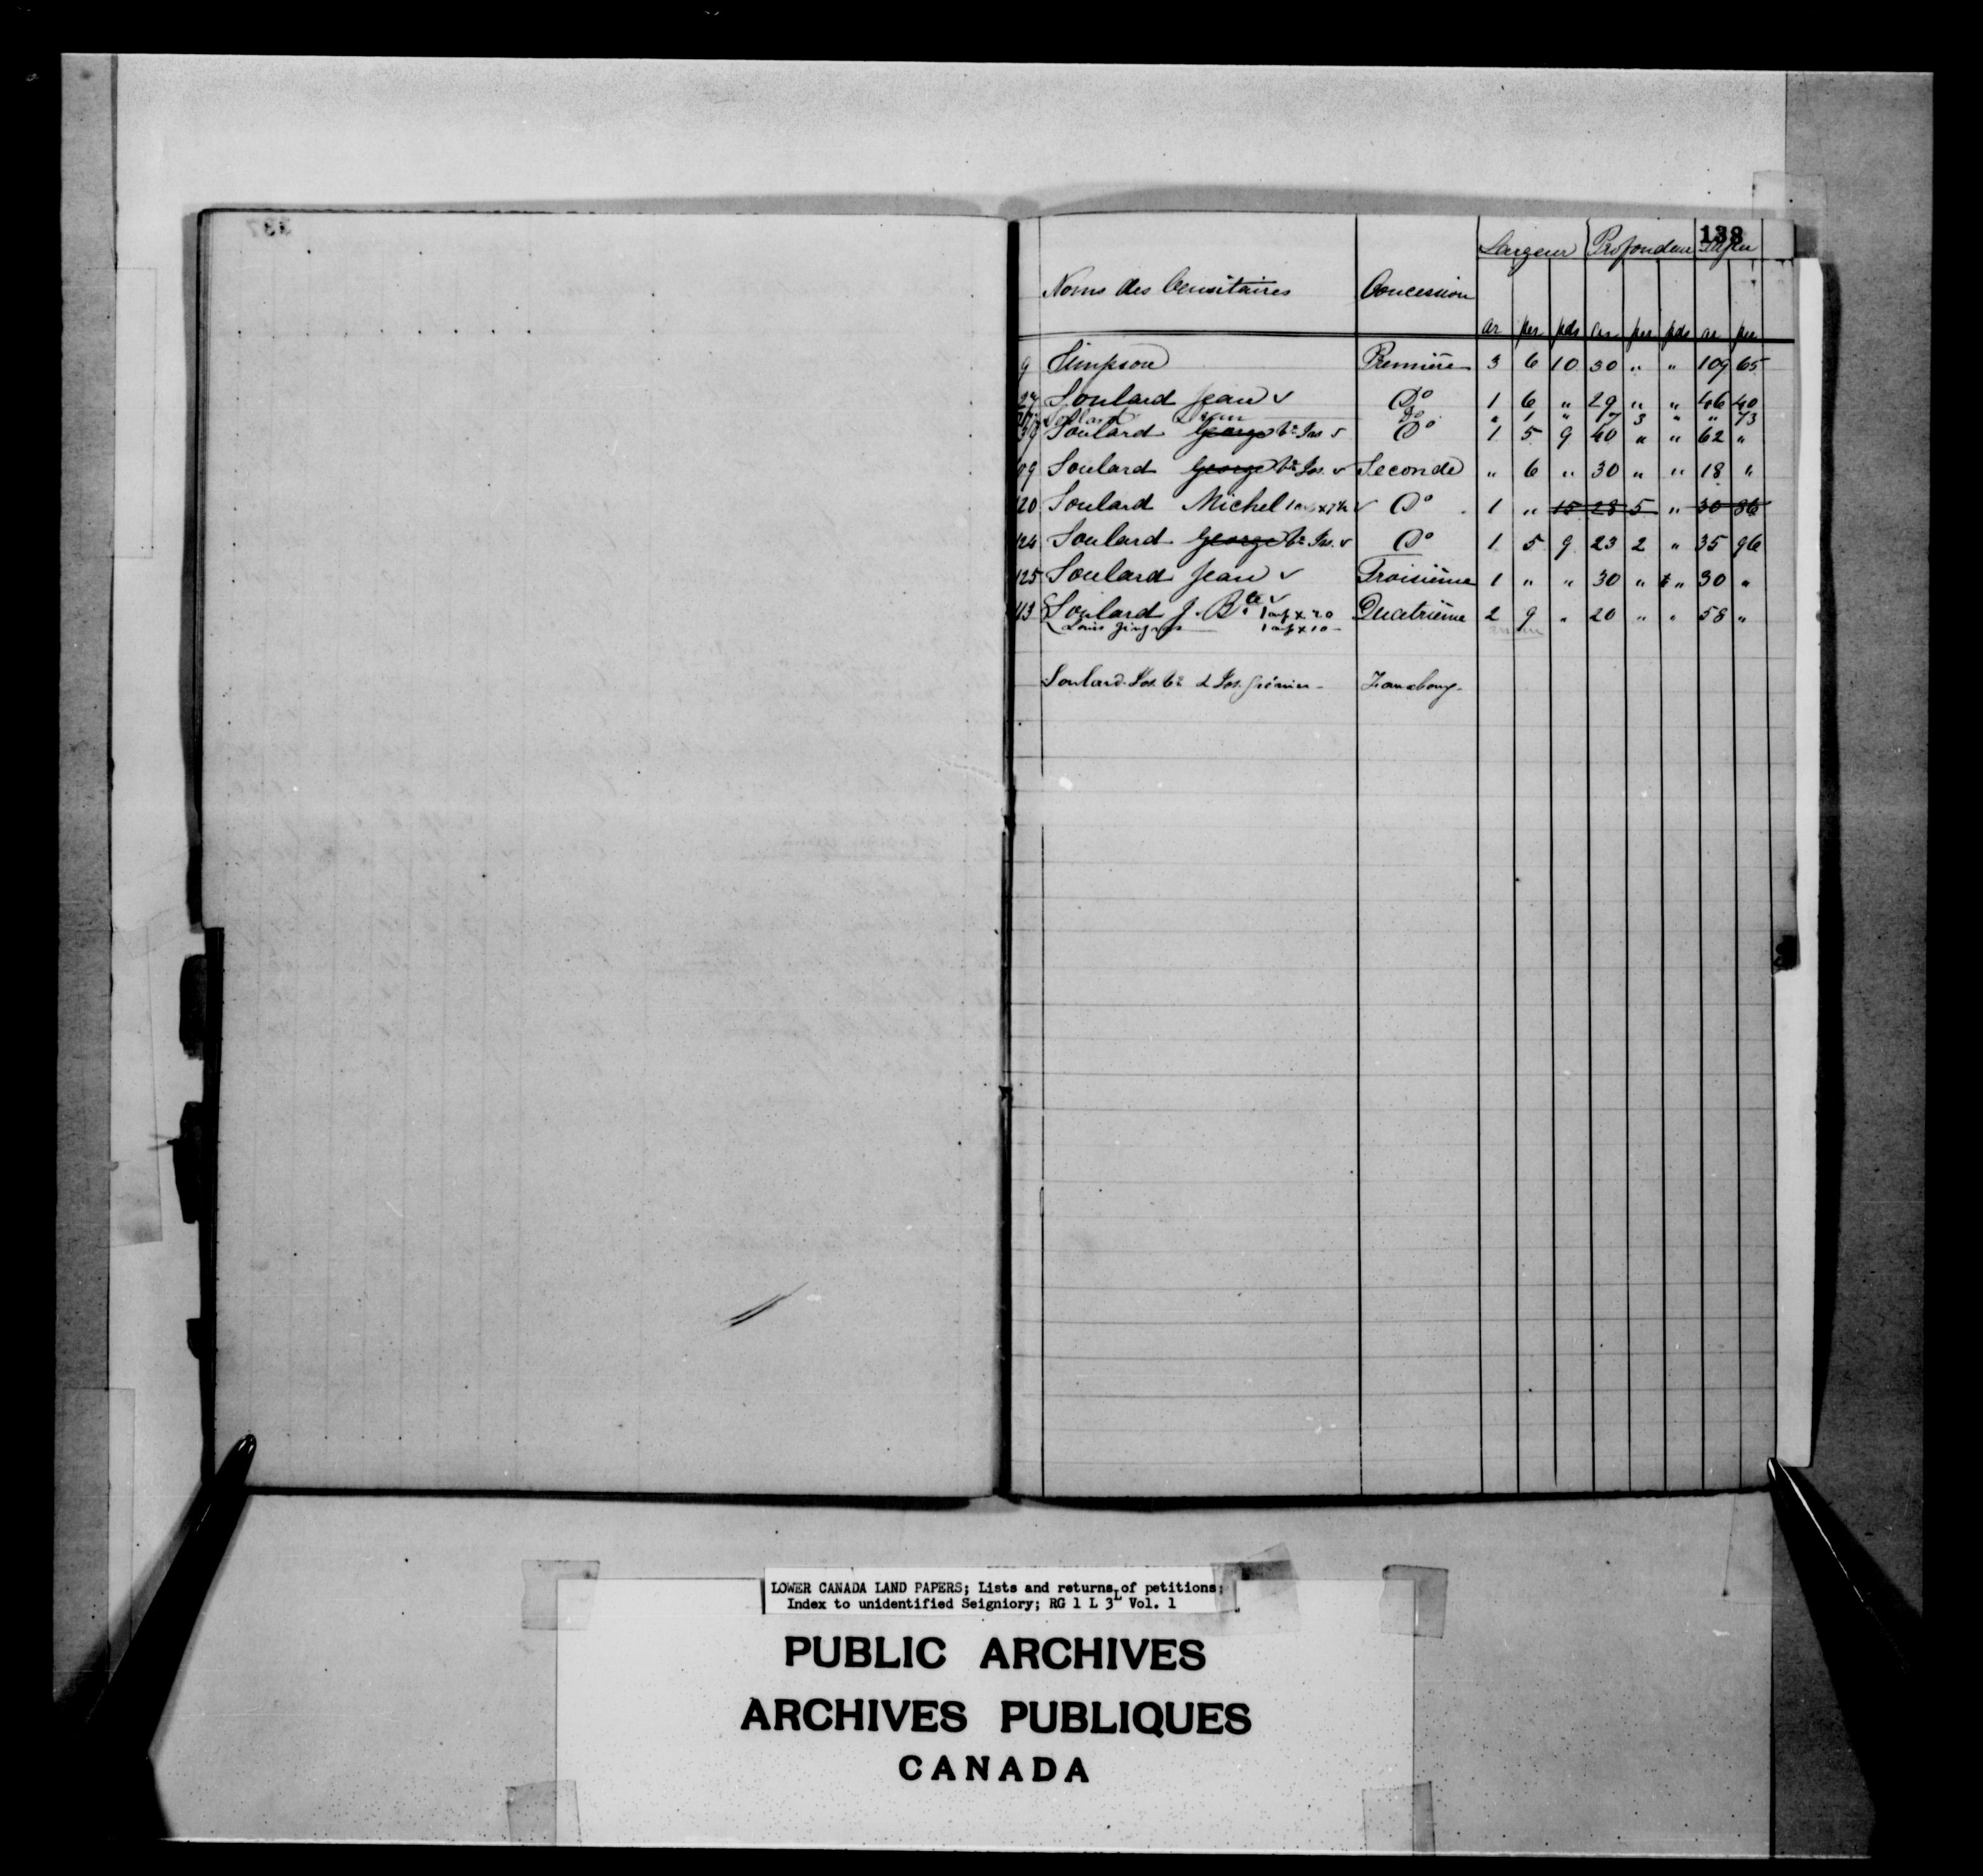 138
Largeur Profondeur
Noms des Censitaires Concession
ar per pds ar per pds ar per
9 Simpson Première 3 6 10 30 " " 109 65
27 Soulard Jean ✓ Do 1 6 " 29 " " 46 40
Soulard Jean Do " 1 " 17 3 " " 73
39 Soulard George Jos Do 1 5 9 40 " " 62 "
109 Soulard George Jos. ✓ Seconde " 6 " 30 " " 18 "
120 Soulard Michel ✓ Do 1 " 15 28 5 " 30 86
124 Soulard George Jos. ✓ Do 1 5 9 23 2 " 35 96
125 Soulard Jean ✓ Troisième 1 " " 30 " " 30 "
113 Soulard J. Bte ✓ Quatrième 2 9 " 20 " " 58 "
Louis Gingras
Soulard Jos. & Jos. Grenier
LOWER CANADA LAND PAPERS; Lists and returns of petitions;
Index to unidentified Seigniory; RG 1 L 3L Vol. 1
PUBLIC ARCHIVES
ARCHIVES PUBLIQUES
CANADA